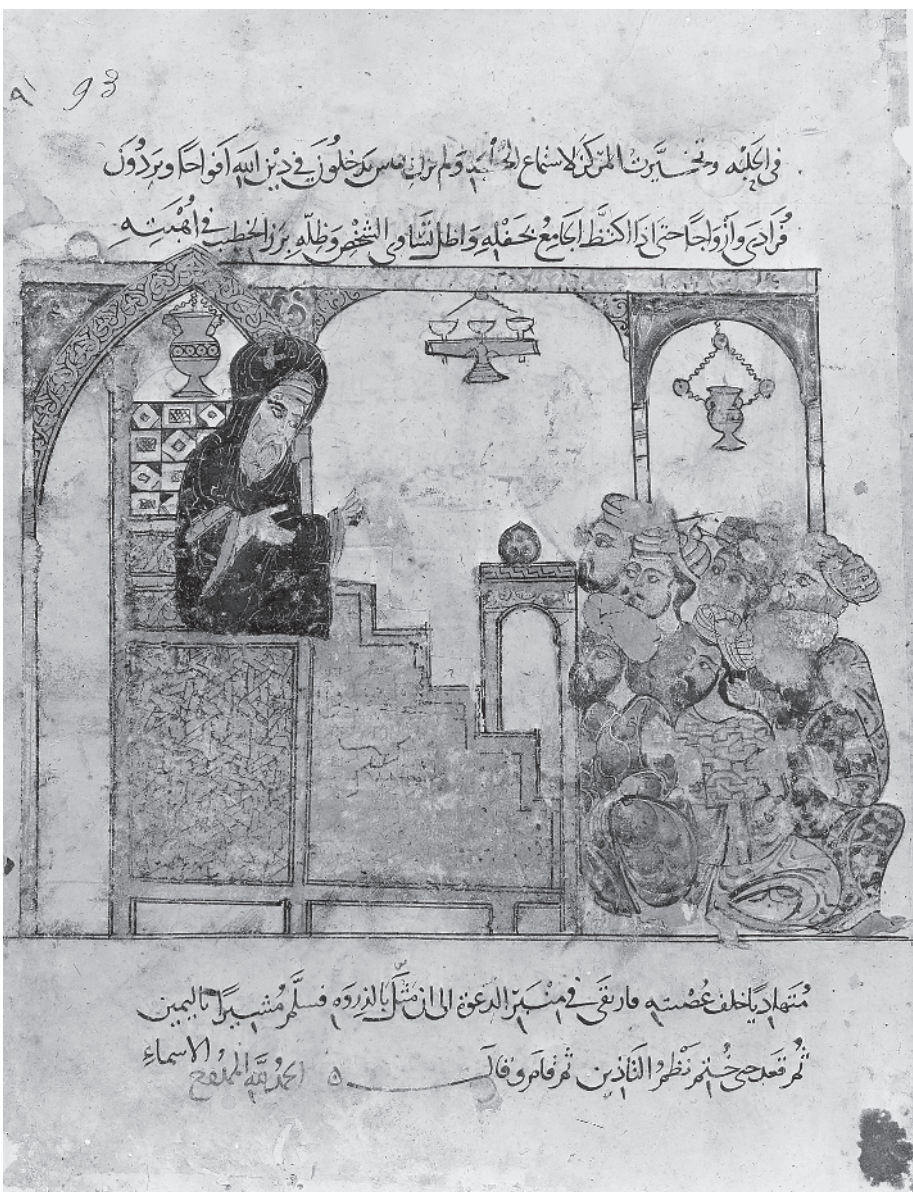 ٩١ 93
في الحَلْبه وتخيَّرت المركَز لاستماع الخُطْبه ولم يزل الناس يَدخلُونَ في دِيْن اللهِ اَفواجًا ويَرِدُونَ
فُرَادَى واَزواجًا حتى اذا اكتظَّ الجَامعُ بحَفْلهِ واظل تَسَاوِي الشخصِ وظلّهِ برز الخطيب في اُهْبَتِهِ
مُتهَادِيًا خلف عُصْبتِهِ فارتقى في مِنْبَرِ الدعوة الى ان مَثَلَ بالذِروَهِ فسلَّم مُشِيرًا باليمين
ثُم قعد حتى خُتم نَظْمُ التَاذين ثم قامَ وقالَ ه الحمدُ للهِ الممدُوح الاسماءِ